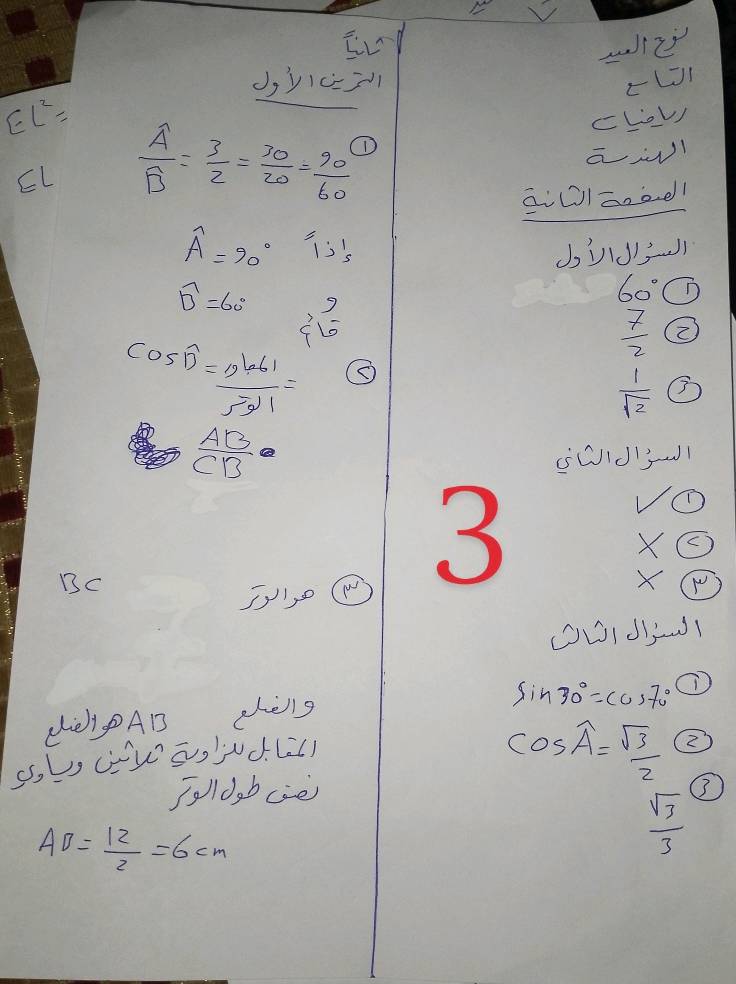 نوح العبيد
التاسع
رياضيات
الهندسة
الصفحة الثانية
السؤال الأول
① 60°
② 7/2
③ 1/√2
السؤال الثاني
① ✓
② ×
③ ×
السؤال الثالث
① sin30°=cos70°
② cosÂ = √3/2
③ √3/3
3
ثانياً
التمرين الأول
① Â/B̂ = 3/2 = 30/20 = 90/60
إذاً Â = 90°
و B̂ = 60
قائم
② cosB̂ = المجاور/الوتر =
AB/CB
③ هو الوتر BC
والضلع AB هو الضلع
المقابل للزاوية ثلاثين ويساوي
نصف طول الوتر
AB = 12/2 = 6 cm
EL²=
EL